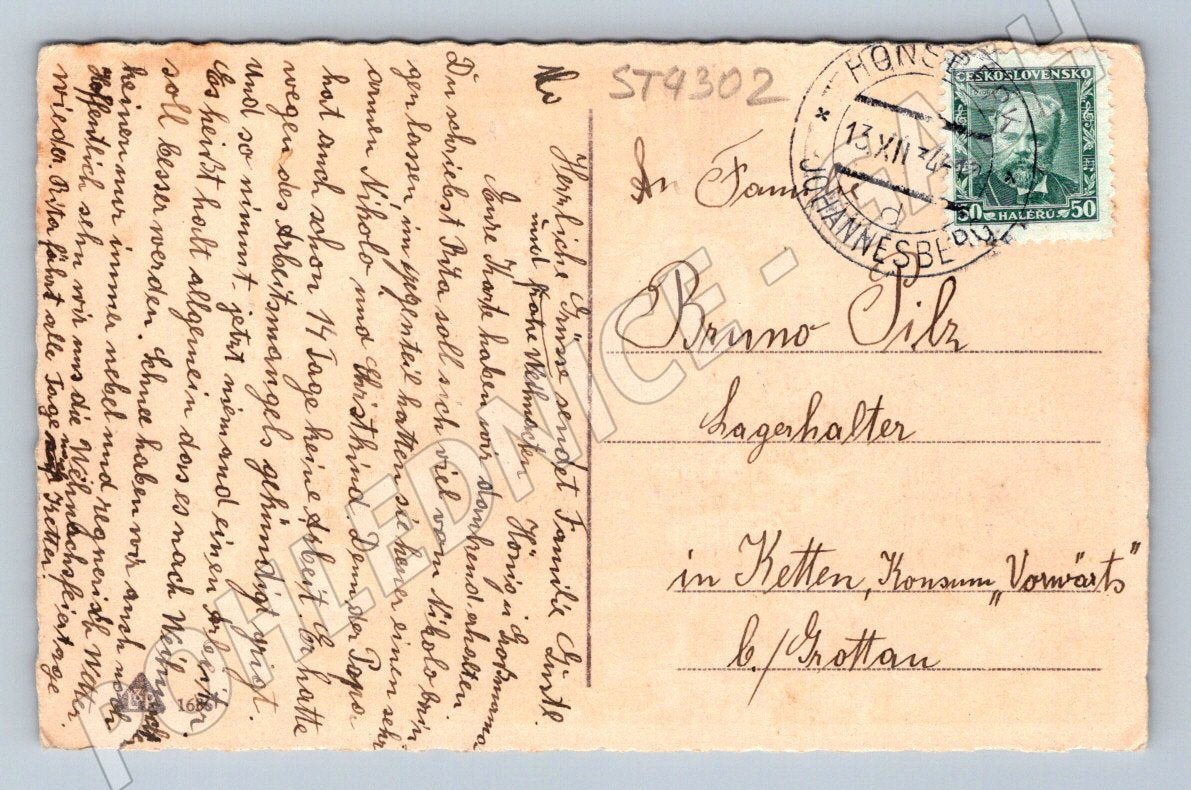 ST4302
HONSBERK
JOHANNESBERG
13 XII 34
ČESKOSLOVENSKO
50 HALÉŘŮ 50
An Familie
Bruno Pilz
Lagerhalter
in Ketten, Konsum „Vorwärts"
b./Grottau
Herrliche Grüsse sendet Familie Gustl.
und frohe Weihnachten Hönig u.
Eure Karte haben wir dankend erhalten
Du schriebst Rita soll sich viel vom Nikolo brin
gen lassen, im gegenteil hatten sie heuer einen sehr
armen Nikolo und Christkind. Denn der Papa
hat auch schon 14 Tage keine Arbeit. Er hatte
wegen des Arbeitsmangels gekündigt griegt.
und so nimmt jetzt niemand einen Arbeiter.
Es heißt halt allgemein das es nach Weihn
soll besser werden. Schnee haben wir auch noch
keinen nur immer nebel und regnerisch Wetter.
Hoffentlich sehn wir uns die Weihnachsfeiertage
wieder. Rita fährt alle Tage Ketten.
1686
POHLEDNICE -